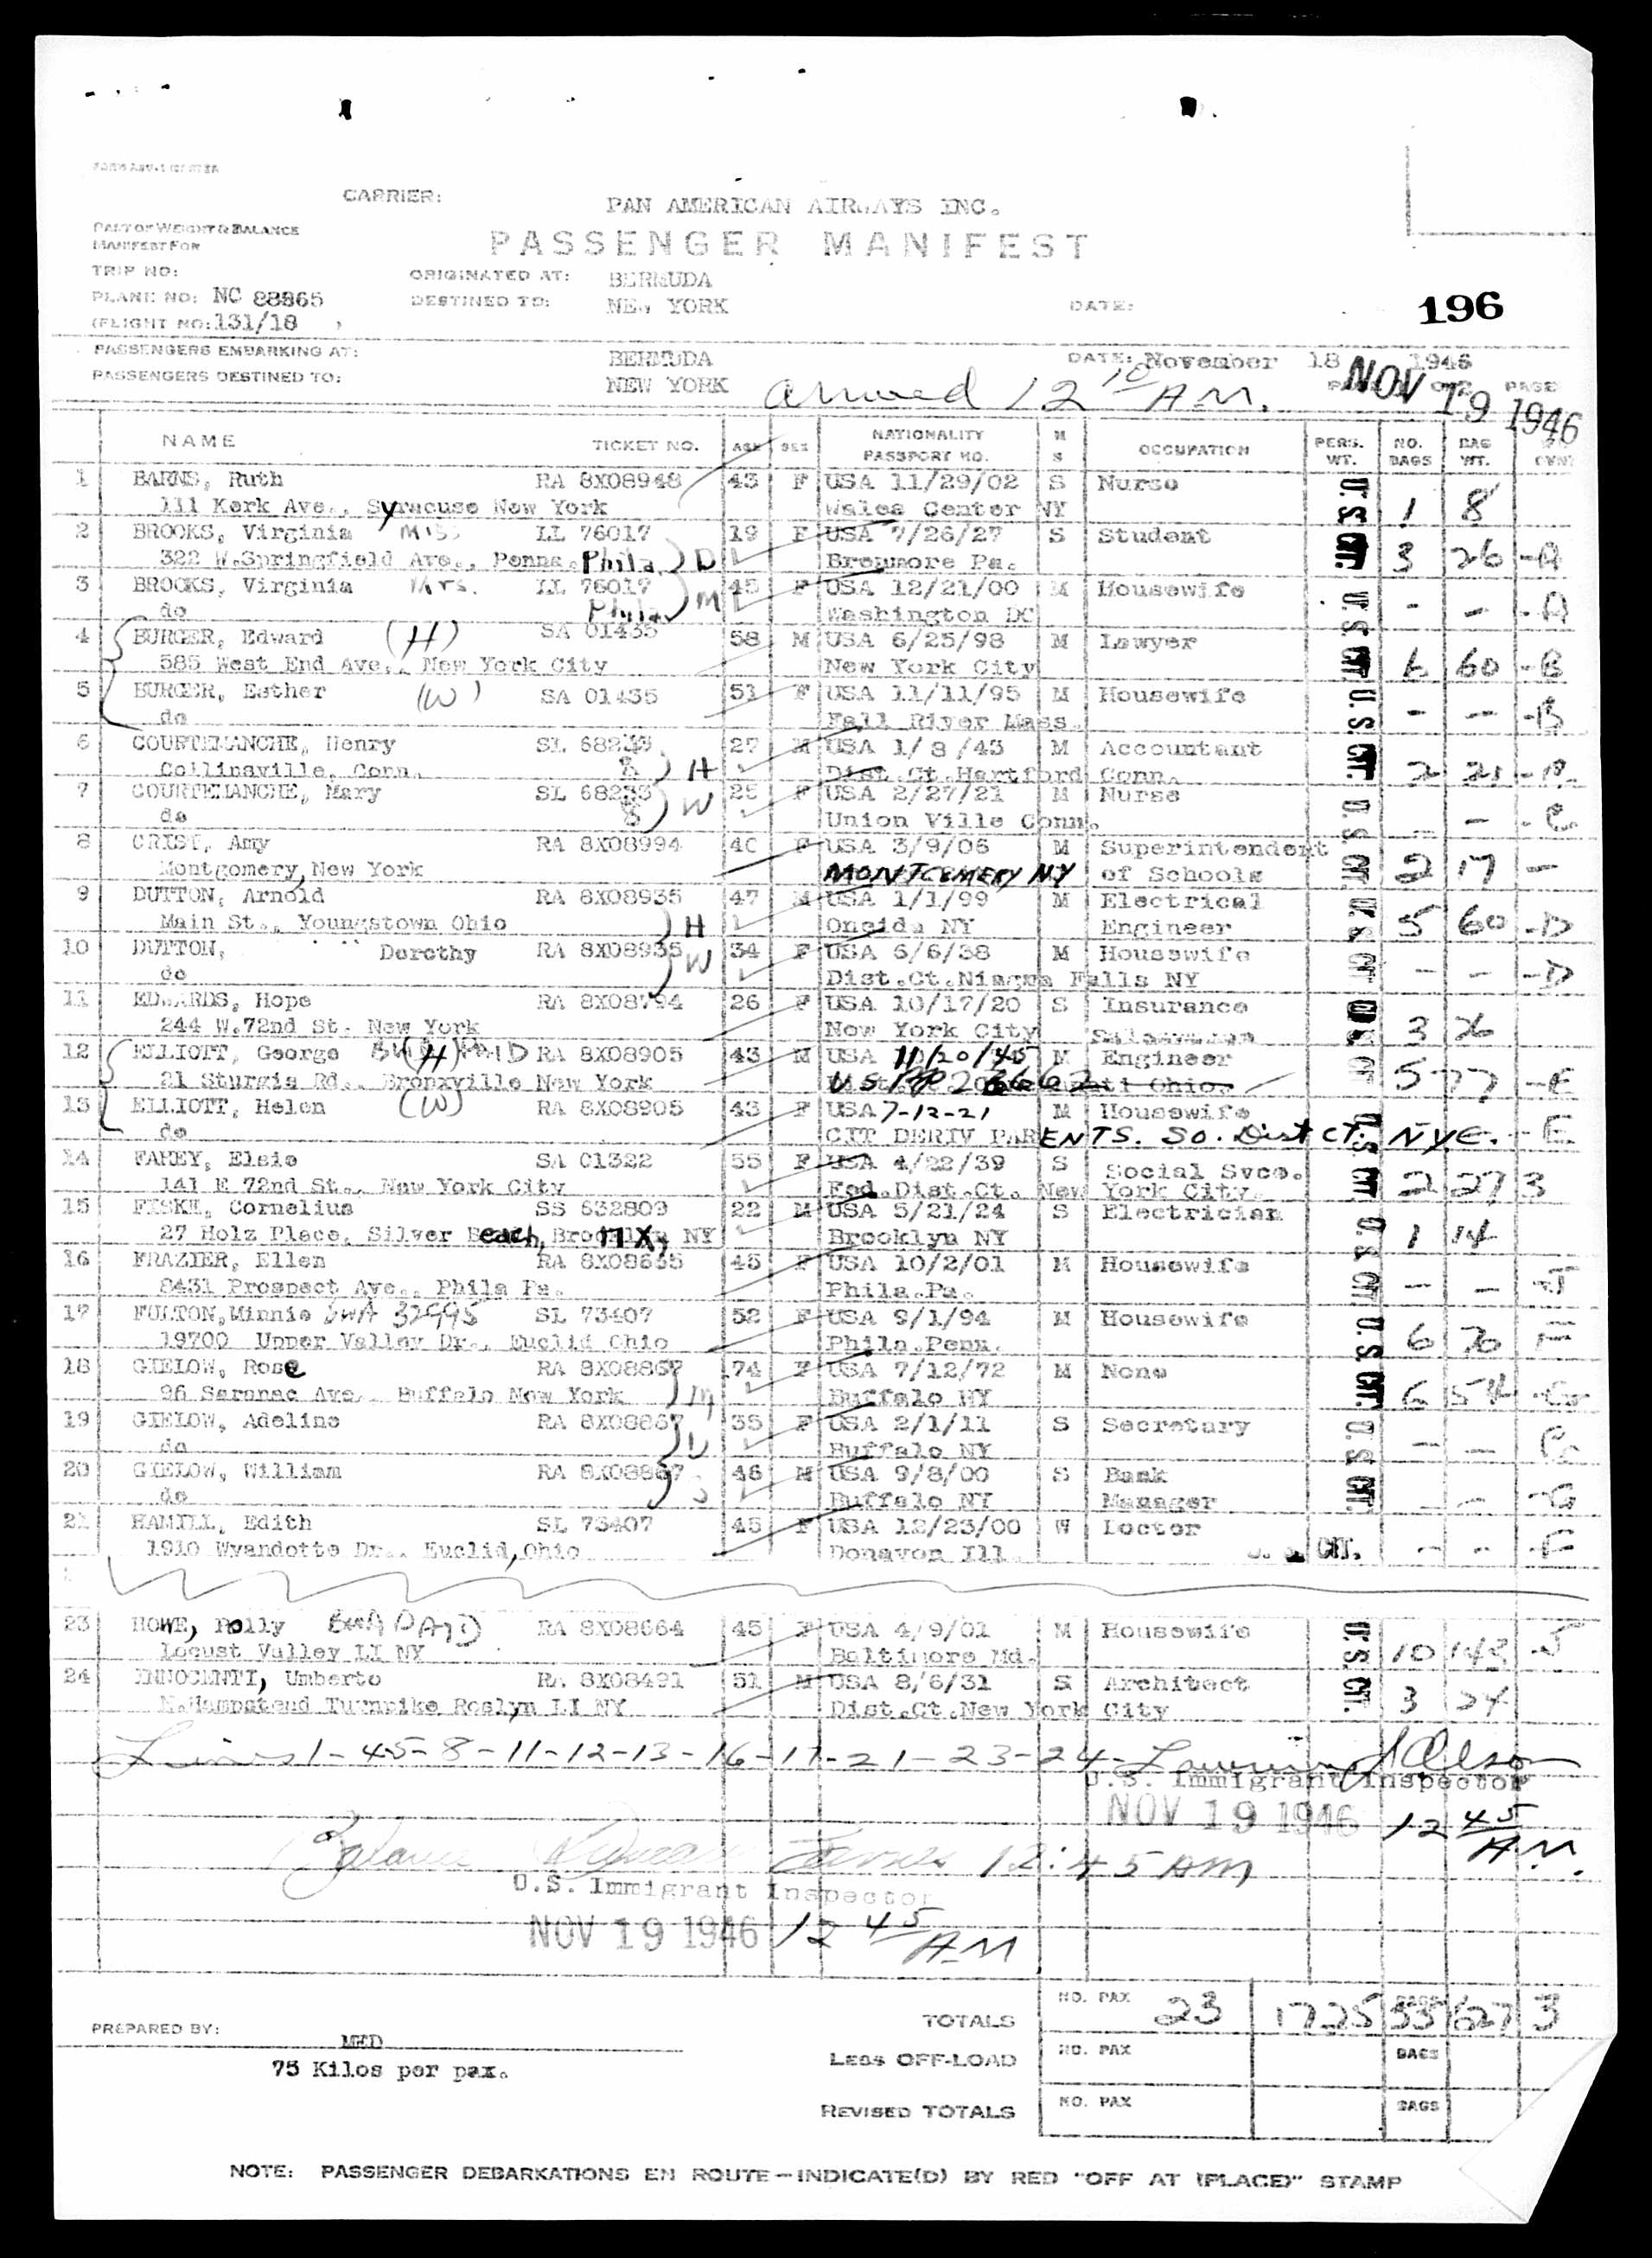 CARRIER: PAN AMERICAN AIRWAYS INC.
PART OF WEIGHT & BALANCE
MANIFEST FOR
PASSENGER MANIFEST
TRIP NO:
ORIGINATED AT: BERMUDA
PLANE NO: NC 88865
DESTINED TO: NEW YORK
DATE:
196
(FLIGHT NO: 131/18 )
PASSENGERS EMBARKING AT: BERMUDA
DATE: November 18 1946
PASSENGERS DESTINED TO: NEW YORK
arrived 12 10 A.M.
NOV 19 1946
PAGE
NAME TICKET NO. AGE SEX NATIONALITY PASSPORT NO. M S OCCUPATION PERS. WT. NO. BAGS BAG WT.
1 BARNS, Ruth RA 8X08948 43 F USA 11/29/02 S Nurse U.S. CIT. 1 8
111 Kerk Ave., Syracuse New York Wales Center NY
2 BROOKS, Virginia Miss LL 76017 19 F USA 7/26/27 S Student 3 26 -A
322 W.Springfield Ave., Penna. Phila. D Brynmore Pa.
3 BROOKS, Virginia Mrs. LL 76017 45 F USA 12/21/00 M Housewife U.S. CIT. - - -A
do Phila M Washington DC
4 BURGER, Edward (H) SA 01435 58 M USA 6/25/98 M Lawyer 6 60 -B
585 West End Ave., New York City New York City
5 BURGER, Esther (W) SA 01435 51 F USA 11/11/95 M Housewife U.S. CIT. - - -B
do Fall River Mass.
6 COURTEMANCHE, Henry SL 68233 27 M USA 1/8/43 M Accountant 2 21
Collinsville, Conn. H Dist.Ct.Hartford Conn.
7 COURTEMANCHE, Mary SL 68233 25 F USA 2/27/21 M Nurse U.S. CIT. - - -C
do W Union Ville Conn.
8 CRIST, Amy RA 8X08994 40 F USA 3/9/06 M Superintendent 2 17 -
Montgomery, New York MONTGOMERY NY of Schools
9 DUTTON, Arnold RA 8X08935 47 M USA 1/1/99 M Electrical U.S. CIT. 5 60 -D
Main St., Youngstown Ohio H Oneida NY Engineer
10 DUTTON, Dorothy RA 8X08935 34 F USA 6/6/38 M Housewife - - -D
do W Dist.Ct.Niagra Falls NY
11 EDWARDS, Hope RA 8X08794 26 F USA 10/17/20 S Insurance 3 26
244 W.72nd St. New York New York City
12 ELLIOTT, George (H) RA 8X08905 43 M USA 11/20/45 M Engineer 5 77 -E
21 Sturgis Rd., Bronxville New York US PP Ohio.
13 ELLIOTT, Helen (W) RA 8X08905 43 F USA 7-12-21 M Housewife -E
do CIT DERIV PARENTS. So. Dist CT. NYC.
14 FAHEY, Elsie SA 01322 55 F USA 4/22/39 S Social Svce. U.S. CIT. 2 27 3
141 E 72nd St., New York City Fed.Dist.Ct. New York City.
15 FISKE, Cornelius SS 632809 22 M USA 5/21/24 S Electrician 1 14
27 Holz Place, Silver Beach, Brooklyn NY Brooklyn NY
16 FRAZIER, Ellen RA 8X08635 45 F USA 10/2/01 M Housewife U.S. CIT. - -
8431 Prospect Ave., Phila Pa. Phila.Pa.
17 FULTON, Minnie 32995 SL 73407 52 F USA 9/1/94 M Housewife 6 70 F
19700 Upper Valley Dr., Euclid Ohio Phila.Penn.
18 GIELOW, Rose RA 8X08867 74 F USA 7/12/72 M None U.S. CIT. 6 54 -G
96 Saranac Ave., Buffalo New York M Buffalo NY
19 GIELOW, Adeline RA 8X08867 35 F USA 2/1/11 S Secretary - - G
do D Buffalo NY
20 GIELOW, William RA 8X08867 46 M USA 9/8/00 S Bank U.S. CIT. - - -G
do S Buffalo NY Manager
21 HAMILL, Edith SL 73407 45 F USA 12/23/00 W Doctor CIT. - - -F
1910 Wyandotte Dr., Euclid, Ohio Donavon Ill.
23 HOWE, Polly RA 8X08664 45 F USA 4/9/01 M Housewife U.S. CIT. 10 143
Locust Valley LI NY Baltimore Md.
24 INNOCENTI, Umberto RA 8X08491 51 M USA 8/6/31 S Architect 3 24
N.Hampstead Turnpike Roslyn LI NY Dist.Ct.New York City
Lines 1-4-5-8-11-12-13-16-17-21-23-24-
U.S. Immigrant Inspector
NOV 19 1946 12 45 A.M.
Balance 12:45 AM
U.S. Immigrant Inspector
NOV 19 1946 12 45 AM
TOTALS NO. PAX 23 1725 BAGS 55 627 3
PREPARED BY: MHD
LESS OFF-LOAD NO. PAX BAGS
75 Kilos per pax.
REVISED TOTALS NO. PAX BAGS
NOTE: PASSENGER DEBARKATIONS EN ROUTE—INDICATE(D) BY RED "OFF AT (PLACE)" STAMP